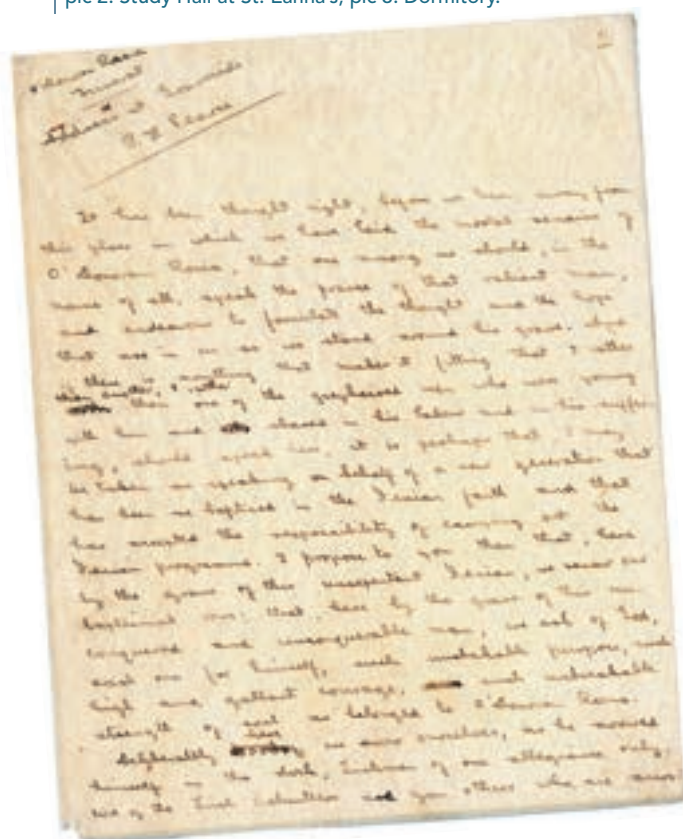 pic 2: Study Hall at St. Eanna's, pic 3: Dormitory.
O'Donovan Rossa
Funeral
Address at Graveside
P. H. Pearse
It has been thought right, before we turn away from
this place in which we have laid the mortal remains of
O'Donovan Rossa, that one among us should, in the
name of all, speak the praise of that valiant man,
and endeavour to formulate the thought and the hope
that are in us as we stand around his grave. And
if there is anything that makes it fitting that I rather
I rather
than one of the grayhaired men who were young
with him and shared in his labour and in his suffer-
ing, should speak here, it is perhaps that I may
be taken as speaking on behalf of a new generation that
has been re-baptised in the Fenian faith and that
has accepted the responsibility of carrying out the
Fenian programme. I propose to you then that, here
by the grave of this unrepentant Fenian, we renew our
baptismal vows; that, here by the grave of this un-
conquered and unconquerable man, we ask of God,
each one for himself, such unshakable purpose, such
high and gallant courage, such unbreakable
strength of soul as belonged to O'Donovan Rossa.
Deliberately here we avow ourselves, as he avowed
himself in the dock, Irishmen of one allegiance only.
We of the Irish Volunteers and you others who are